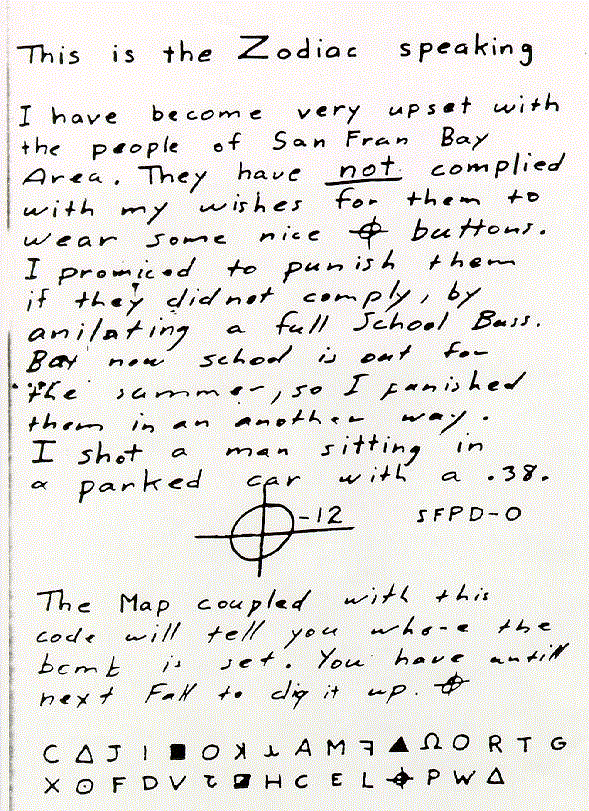 This is the Zodiac speaking
I have become very upset with
the people of San Fran Bay
Area. They have not complied
with my wishes for them to
wear some nice ⌖ buttons.
I promiced to punish them
if they did not comply, by
anilating a full School Buss.
But now school is out for
the summer, so I punished
them in an another way.
I shot a man sitting in
a parked car with a .38.
⌖-12 SFPD-0
The Map coupled with this
code will tell you where the
bomb is set. You have untill
next Fall to dig it up. ⌖
C Δ J I ■ O ʞ ⅄ A M ꟻ ▲ Ω O R T G
X ⊙ F D V ㇢ ◪ H C E L ⌖ P W Δ